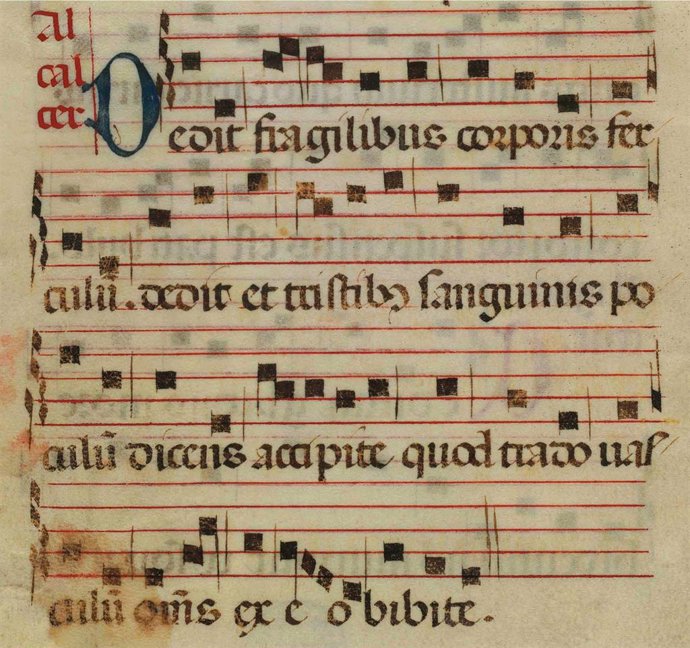 Al
cal
cer
Dedit fragilibus corporis fer
culū. dedit et tristibꝯ sanguinis po
culū dicens accipite quod trado uas
culū om̄s ex eo bibite.